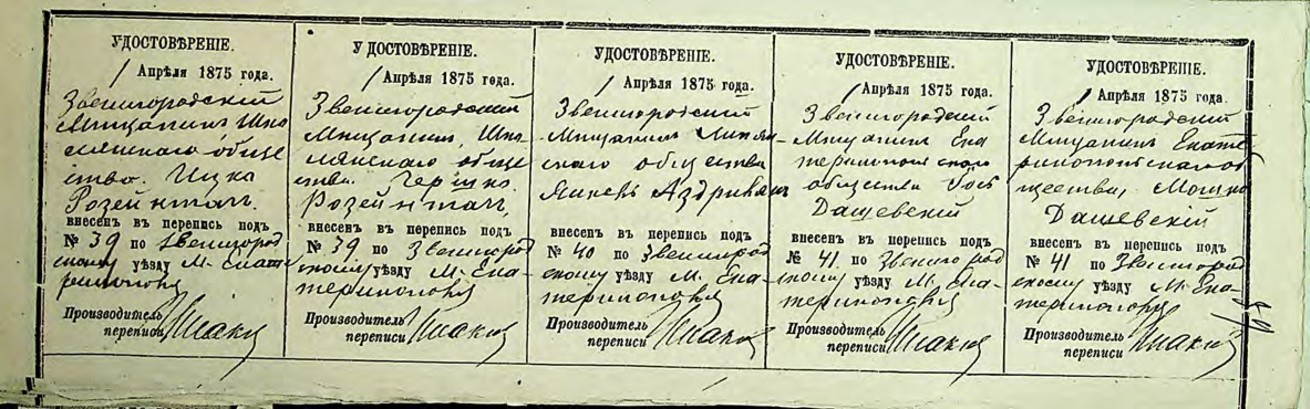 УДОСТОВѢРЕНІЕ.
1 Апрѣля 1875 года.
Звенигородскій
Мищанинъ Шпо
лянскаго обще
ство. Ицка
Розейнтал.
внесенъ въ перепись подъ
№ 39 по Звенигород
скому уѣзду М. Екате
ринополя
Производитель
переписи
УДОСТОВѢРЕНІЕ.
1 Апрѣля 1875 года.
Звенигородский
Мищанин, Шпо
лянскаго обще
ства. Гершко.
Розейнтал,
внесенъ въ перепись подъ
№ 39 по Звенигород
скому уѣзду М. Ека-
теринополя
Производитель
переписи
УДОСТОВѢРЕНІЕ.
1 Апрѣля 1875 года.
Звенигородский
Мищанинъ
скаго общества
Янкевъ
внесенъ въ перепись подъ
№ 40 по Звенигород
скому уѣзду М. Ека-
теринополя
Производитель
переписи
УДОСТОВѢРЕНІЕ.
1 Апрѣля 1875 года.
Звенигородский
Мищанин Ека
теринопольскаго
общества
Дашевскій
внесенъ въ перепись подъ
№ 41 по Звенигород
скому уѣзду М. Ека-
теринополя
Производитель
переписи
УДОСТОВѢРЕНІЕ.
1 Апрѣля 1875 года.
Звенигородский
Мищанин Екате
ринопольскаго об
щества, Мошко
Дашевскій
внесенъ въ перепись подъ
№ 41 по Звенигород
скому уѣзду М. Ека-
теринополя
Производитель
переписи